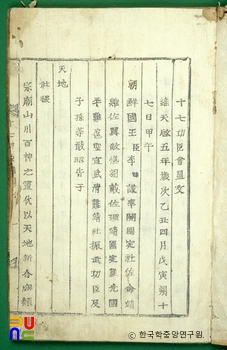 十七功臣會盟文
維天啓五年歲次乙丑四月戊寅朔十
七日甲午
朝鮮國王臣李諱謹率開國定社佐命靖
難佐翼敵愾翊戴佐理靖國定難光國
平難扈聖宣武清難靖社振武功臣及
子孫等敢昭告于
天地
社稷
宗廟山川百神之靈伏以天地新合
© 한국학중앙연구원.